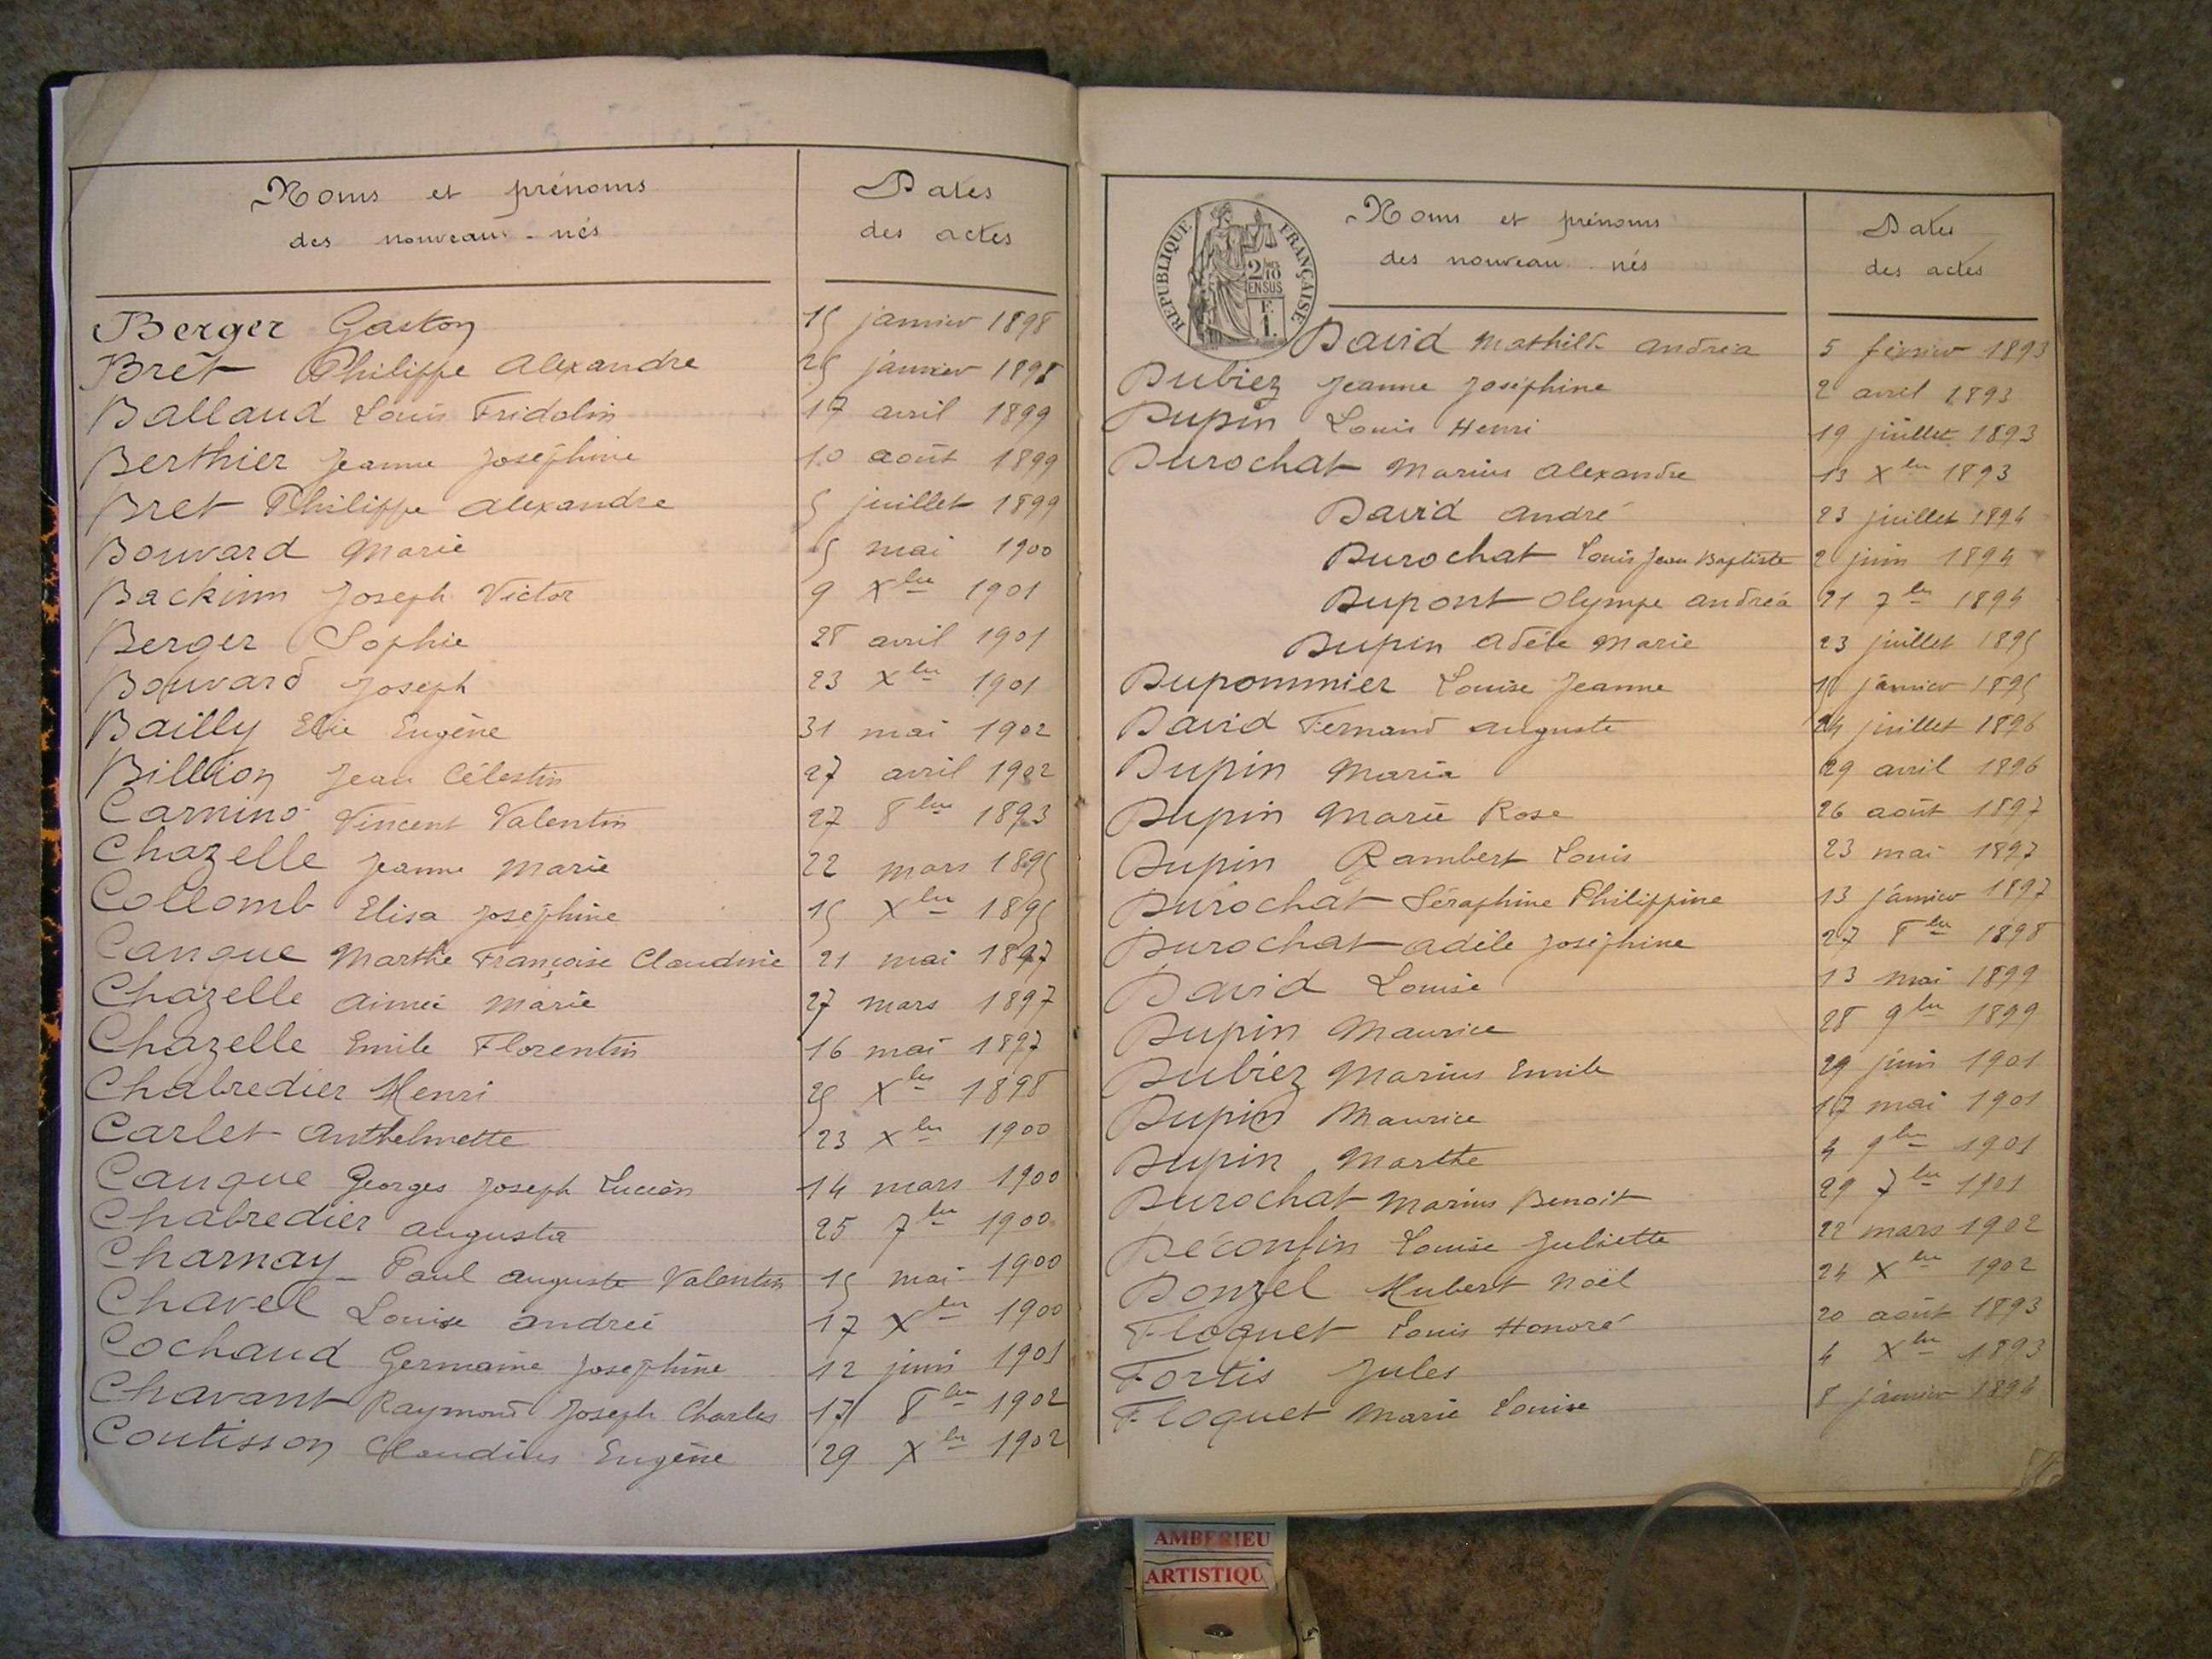 Noms et prénoms
des nouveau-nés
Dates
des actes
Berger Gaston 15 janvier 1898
Bret Philippe Alexandre 25 janvier 1898
Balland Louis Fridolin 17 avril 1899
Berthier Jeanne Joséphine 10 août 1899
Bret Philippe Alexandre 5 juillet 1899
Bouvard Marie 5 mai 1900
Backinn Joseph Victor 9 Xbre 1901
Berger Sophie 28 avril 1901
Bouvard Joseph 23 Xbre 1901
Bailly Elie Eugène 31 mai 1902
Billion Jean Célestin 27 avril 1902
Carnino Vincent Valentin 27 8bre 1893
Chazelle Jeanne Marie 22 mars 1895
Collomb Elisa Joséphine 15 Xbre 1895
Cangue Marthe Françoise Claudine 21 mai 1897
Chazelle Aimée Marie 27 mars 1897
Chazelle Emile Florentin 16 mai 1897
Chabredier Henri 25 Xbre 1898
Carlet Anthelmette 23 Xbre 1900
Cangue Georges Joseph Lucien 14 mars 1900
Chabredier Augusta 25 7bre 1900
Charnay Paul Auguste Valentin 15 mai 1900
Chavel Louise Andrée 17 Xbre 1900
Cochaud Germaine Joséphine 12 juin 1901
Chavant Raymond Joseph Charles 17 8bre 1902
Coutisson Claudius Eugène 29 Xbre 1902
RÉPUBLIQUE FRANÇAISE
2/10
EN SUS
F.
1.
Noms et prénoms
des nouveau nés
Dates
des actes
David Mathilde Andréa 5 février 1893
Dubiez Jeanne Joséphine 2 avril 1893
Dupin Louis Henri 19 juillet 1893
Durochat Marius Alexandre 13 Xbre 1893
David André 23 juillet 1894
Durochat Louis Jean Baptiste 2 juin 1894
Dupont Olympe Andréa 21 7bre 1894
Dupin Adèle Marie 23 juillet 1895
Dupommier Louise Jeanne janvier 1895
David Fernand Auguste 24 juillet 1896
Dupin Maria 29 avril 1896
Dupin Marie Rose 26 août 1897
Dupin Rambert Louis 23 mai 1897
Durochat Séraphine Philippine 13 janvier 1897
Durochat Adèle Joséphine 27 8bre 1898
David Louise 13 mai 1899
Dupin Maurice 28 9bre 1899
Dubiez Marius Emile 29 juin 1901
Dupin Maurice 17 mai 1901
Dupin Marthe 4 9bre 1901
Durochat Marius Benoit 29 7bre 1901
Déconfin Louise Juliette 22 mars 1902
Donzel Hubert Noël 24 Xbre 1902
Floquet Louis Honoré 20 août 1893
Fortis Jules 4 Xbre 1893
Floquet Marie Louise 8 janvier 1894
AMBERIEU
ARTISTIQU